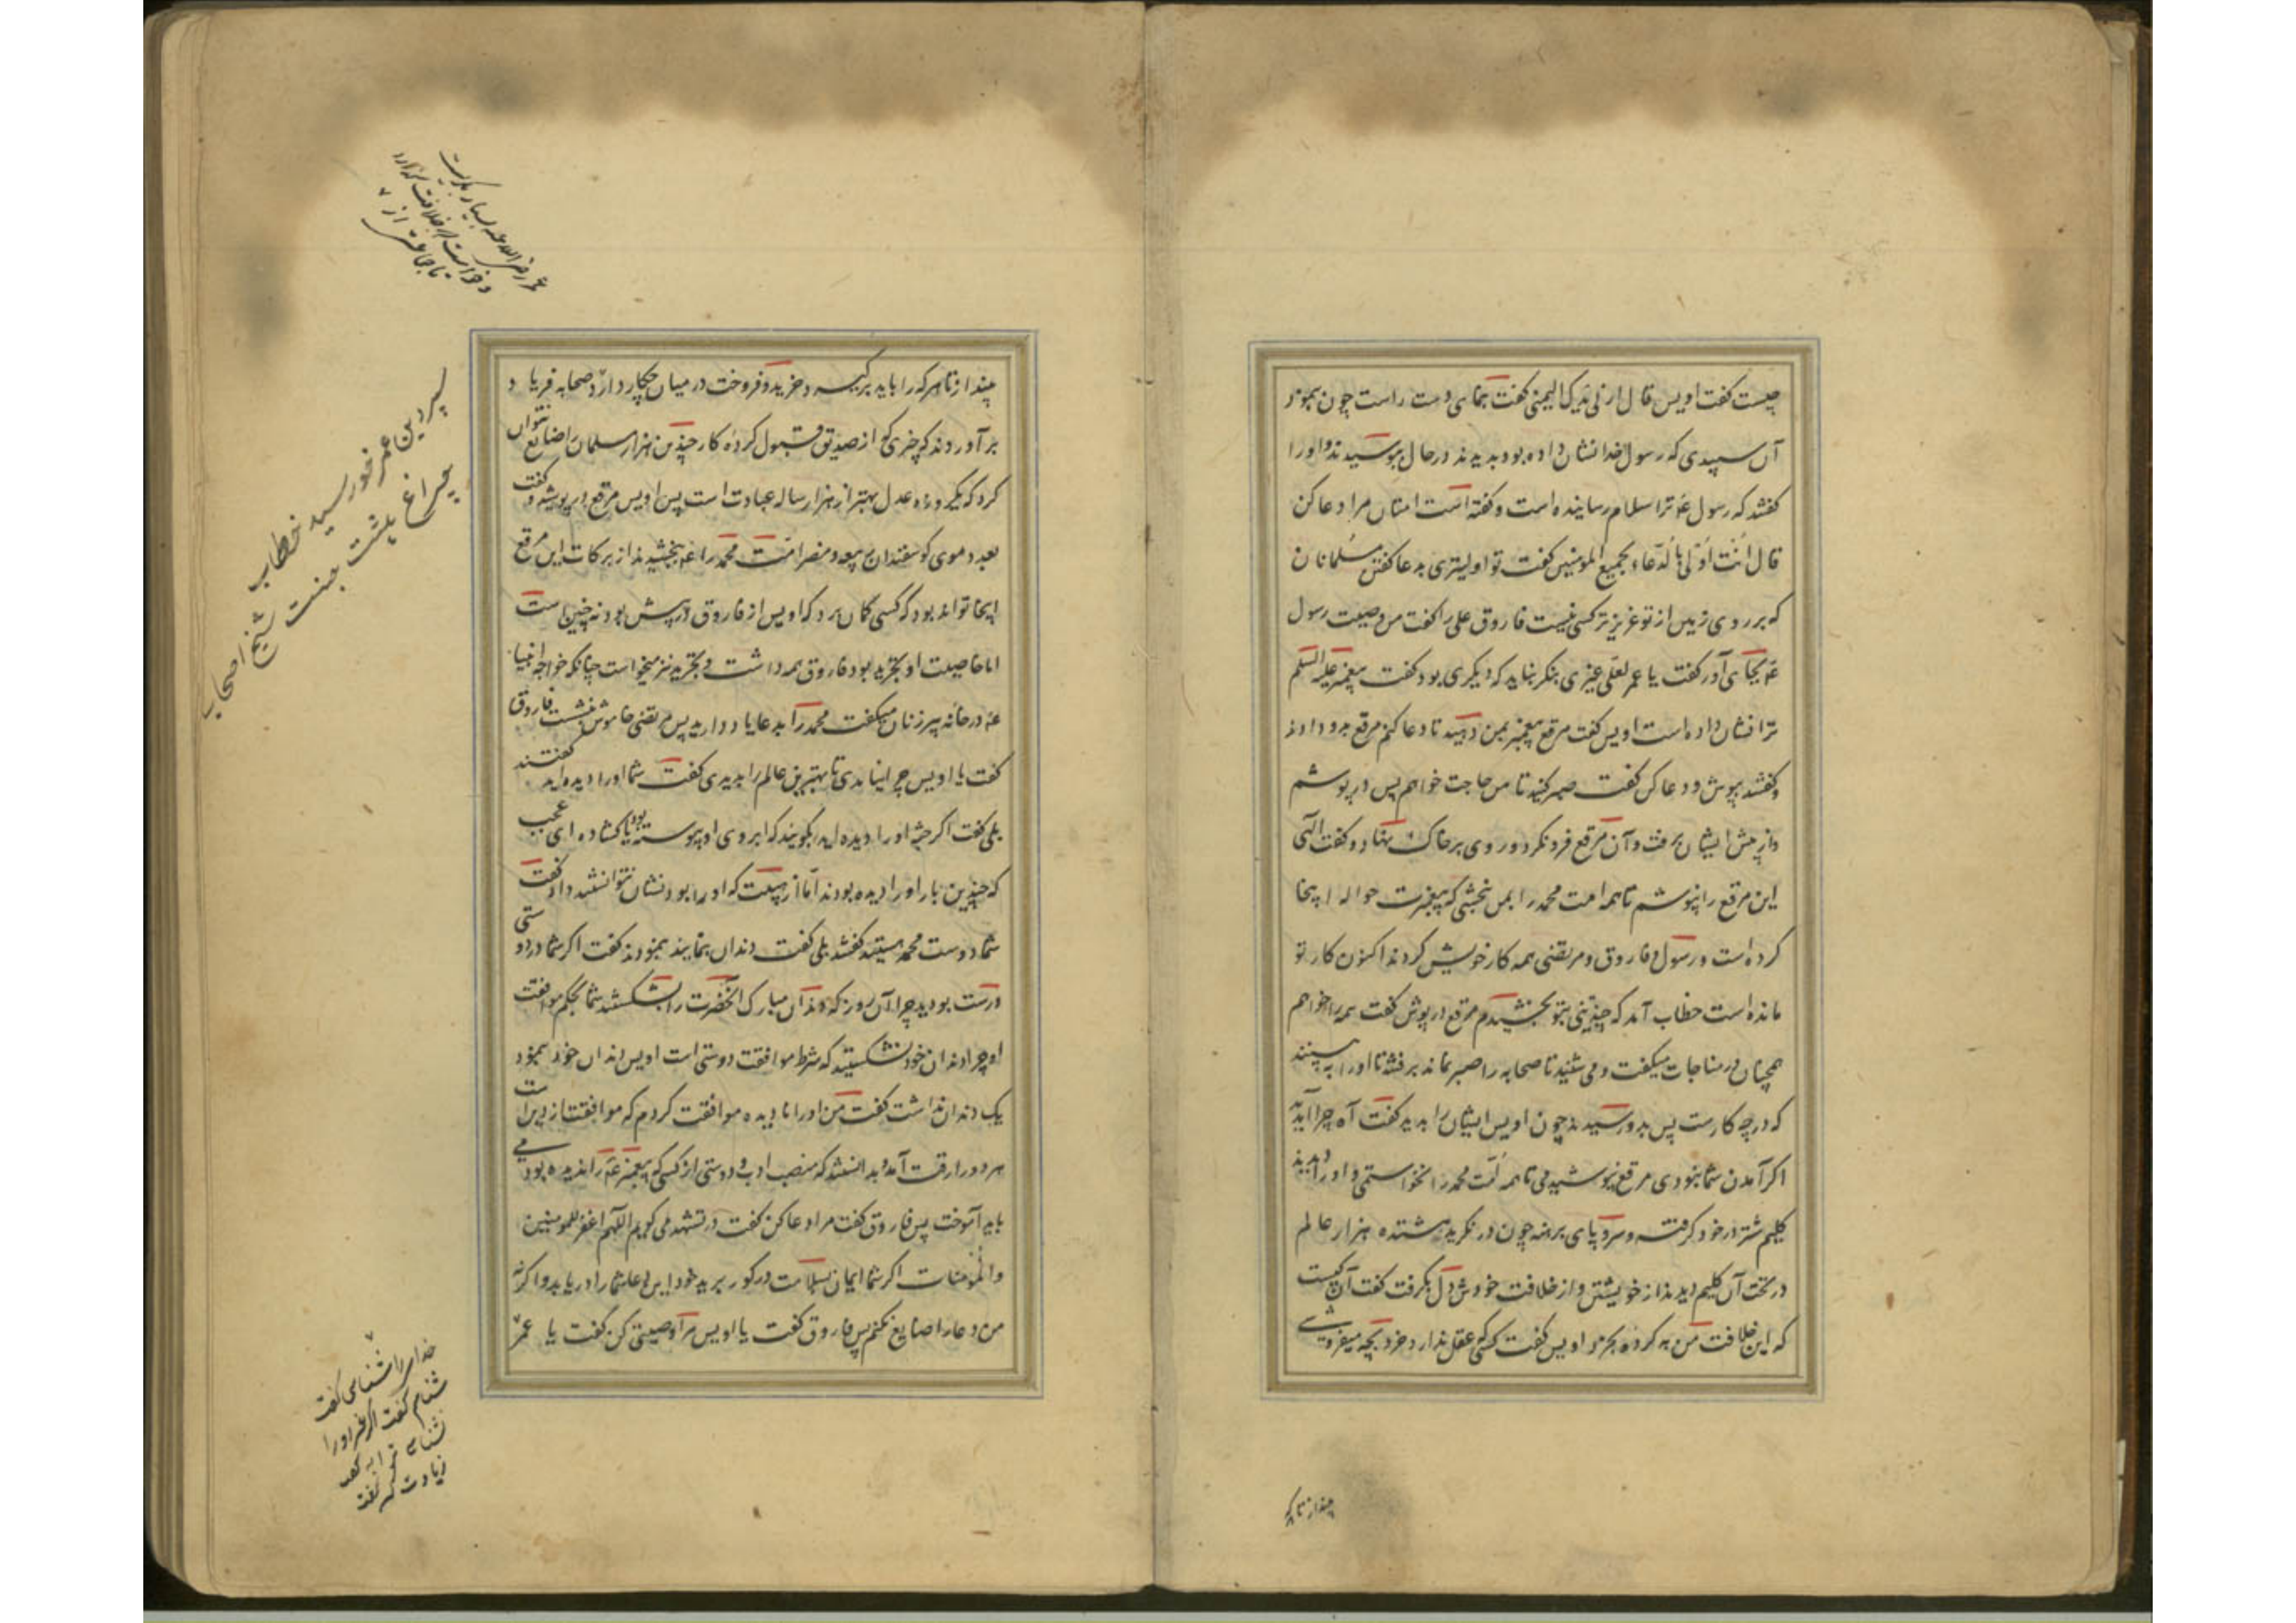 چیست گفت اویس قال ارنی یدک الیمنی گفت بنمای دست راست چون بنمود
آن سپیدی که رسول خدا نشان داده بود بدیدند در حال ببوسیدند و او را
گفتند که رسول عم ترا سلام رسانیده است و گفته است امتان مرا دعا کن
قال انت اولی بالدعاء لجمیع المومنین گفت تو اولیتری بدعا گفتن مسلمانان
که بر روی زمین از تو عزیزتر کسی نیست فاروق علی را گفت من وصیت رسول
عم بجای آر گفت یا عمر لعلی غیری بنگر نباید که دیگری بود گفت پیغمبر علیه السلم
ترا نشان داده است اویس گفت مرقع پیغمبر بمن دهید تا دعا کنم مرقع بدو دادند
و گفتند بپوش و دعا کن گفت صبر کنید تا من حاجت خواهم پس در پوشم
و از پیش ایشان برفت و آن مرقع فرو نکرد و روی بر خاک نهاد و گفت الهی
این مرقع را نپوشم تا همه امت محمد را بمن نبخشی که پیغمبرت حواله اینجا
کرده است و رسول و فاروق و مرتضی همه کار خویش کردند اکنون کار تو
مانده است خطاب آمد که چندینی بتو بخشیدم مرقع در پوش گفت همه را خواهم
همچنان در مناجات میگفت و می شنید تا صحابه را صبر نماند برفتند تا او را ببینند
که در چه کارست پس بدو رسیدند چون اویس ایشان را بدید گفت آه چرا آمدید
اگر آمدن شما نبودی مرقع نپوشیدمی تا همه امت محمد را نخواستمی و او را دیدند
گلیم شتر در خود گرفته و سر و پای برهنه چون در نگرید هشتده هزار عالم
در تحت آن گلیم دیدند از خویشتن و از خلافت خودش دل بگرفت گفت آن کیست
که این خلافت من به گرده بخرد اویس گفت کسی که عقل ندارد خرد بچه میفروشی
بینداز تا هر که
بینداز تا هر که را باید برگیرد و خرید و فروخت در میان چکار دارد صحابه فریاد
بر آوردند که چیزی که از صدیق قبول کرده کار چندین هزار مسلمان ضایع نتوان
کرد که یکروزه عدل بهتر از هزار ساله عبادت است پس اویس مرقع در پوشید و گفت
بعدد موی گوسفندان ربیعه و مضر امت محمد را عم بخشیدند از برکات این مرقع
اینجا تواند بود که کسی گمان برد که اویس از فاروق در پیش بود نه چنین است
اما خاصیت او تجرید بود فاروق همه داشت و تجرید نیز میخواست چنانکه خواجه انبیا
عم در خانه پیر زنان میگفت محمد را بدعا یاد دارید پس مرتضی خاموش بنشست فاروق
گفت یا اویس چرا نیامدی تا بهترین عالم را بدیدی گفت شما او را دیده اید گفتند
بلی گفت اگر جبه او را دیده اید بگویید که ابروی او پیوسته بود یا گشاده ای عجب
که چندین بار او را دیده بودند اما از هیبت که او را بود نشان نتوانستند داد گفت
شما دوست محمد هستید گفتند بلی گفت دندان بنمایید بنمودند گفت اگر شما در دوستی
درست بودید چرا آن روز که دندان مبارک آنحضرت را بشکستند شما بحکم موافقت
او چرا دندان خود نشکستید که شرط موافقت دوستی است اویس دندان خود بنمود
یک دندان نداشت گفت من او را نادیده موافقت کردم که موافقت از دین است
هر دو را رقت آمد بدانستند که منصب ادب و دوستی از کسی که پیغمبر عم را ندیده بود می
باید آموخت پس فاروق گفت مرا دعا کن گفت در تشهد می گویم اللهم اغفر للمومنین
والمومنات اگر شما ایمان بسلامت در گور برید خود این دعا شما را دریابد و اگرنه
من دعا را ضایع نکنم پس فاروق گفت یا اویس مرا وصیتی کن گفت یا عمر
عمر رضی الله عنه بسیار بگریست
و خواست از خلافت
تا جماعتی از
چراغ بهشت جنت شیخ اصحاب
خدای را شناسی گفت
شناسم گفت اگر غیر او را
نشناسی ترا به گفت
زیادت کن گفت